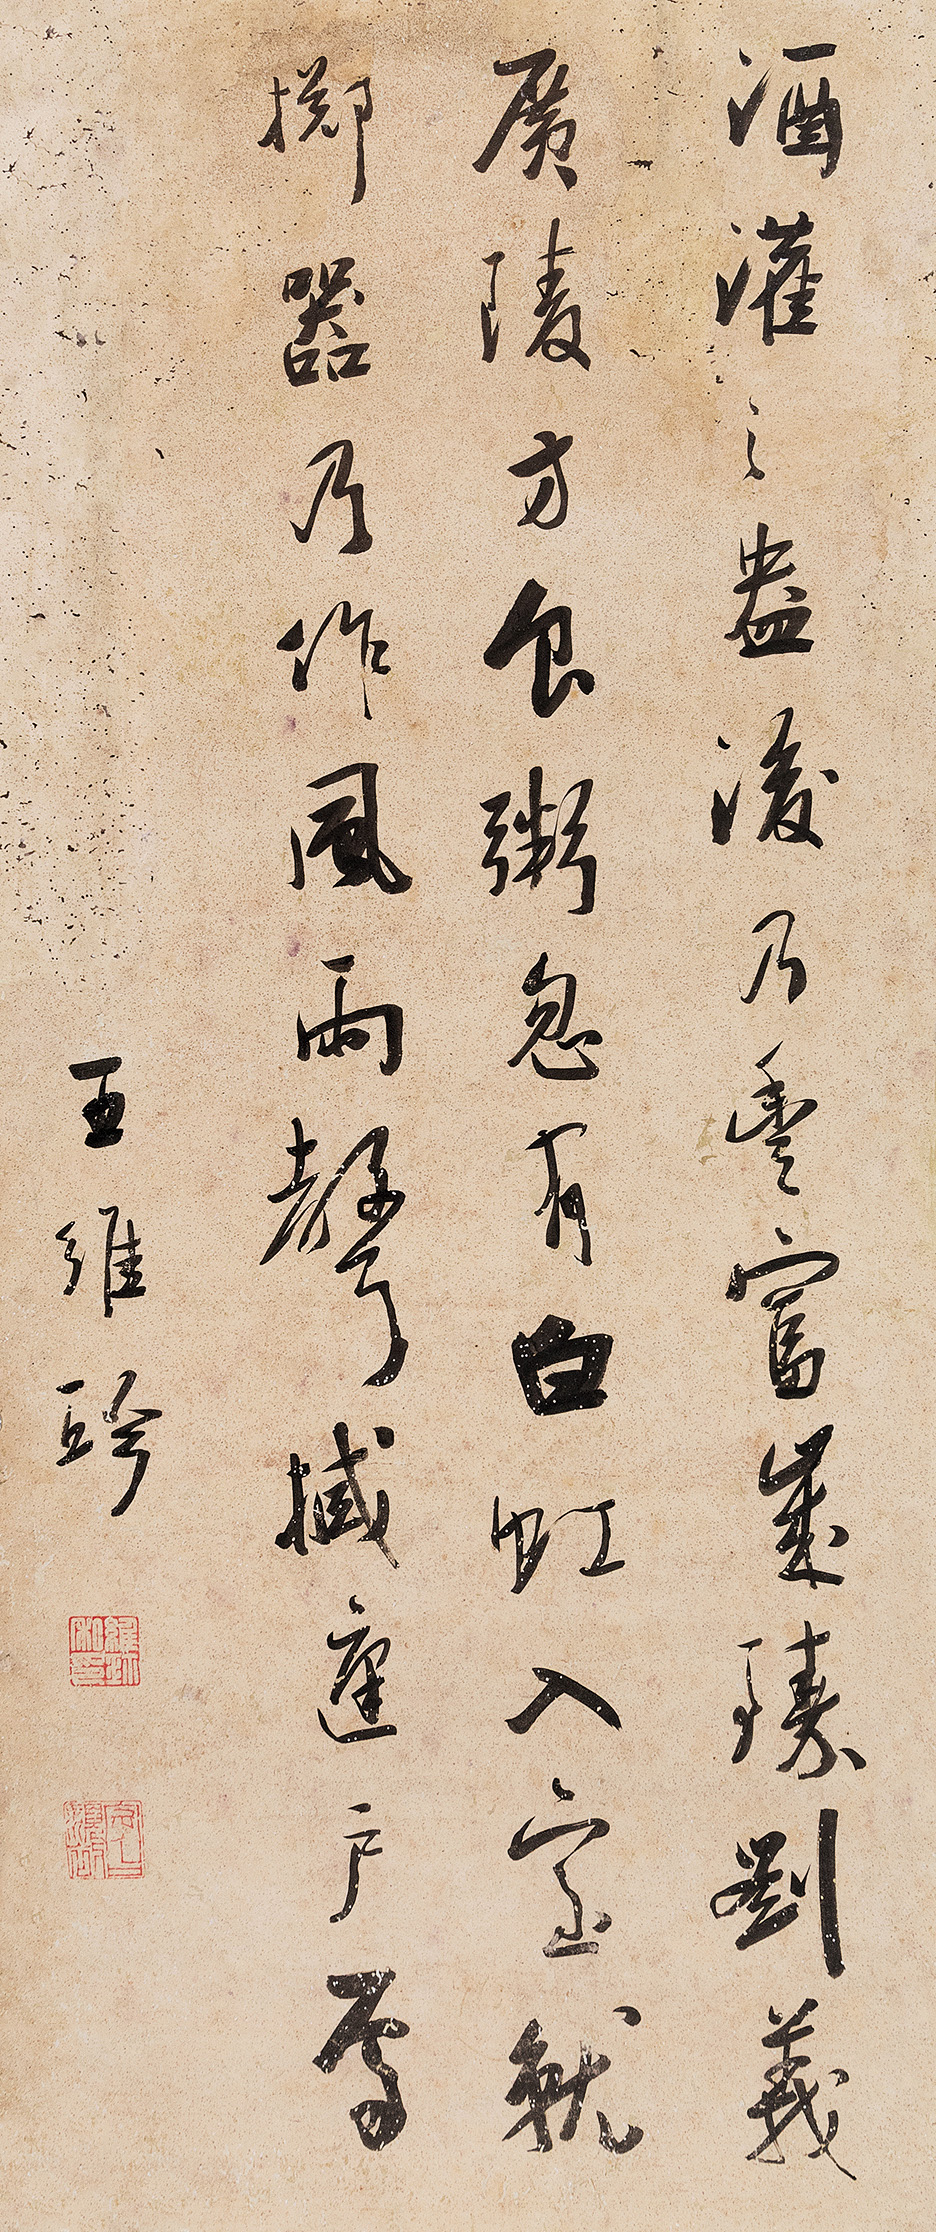 酒灌之盎後乃豐富歲臻劉義
廣陵方食粥忽有白虹入室就
擲器乃作風雨聲撼庭戶焉
王維珍